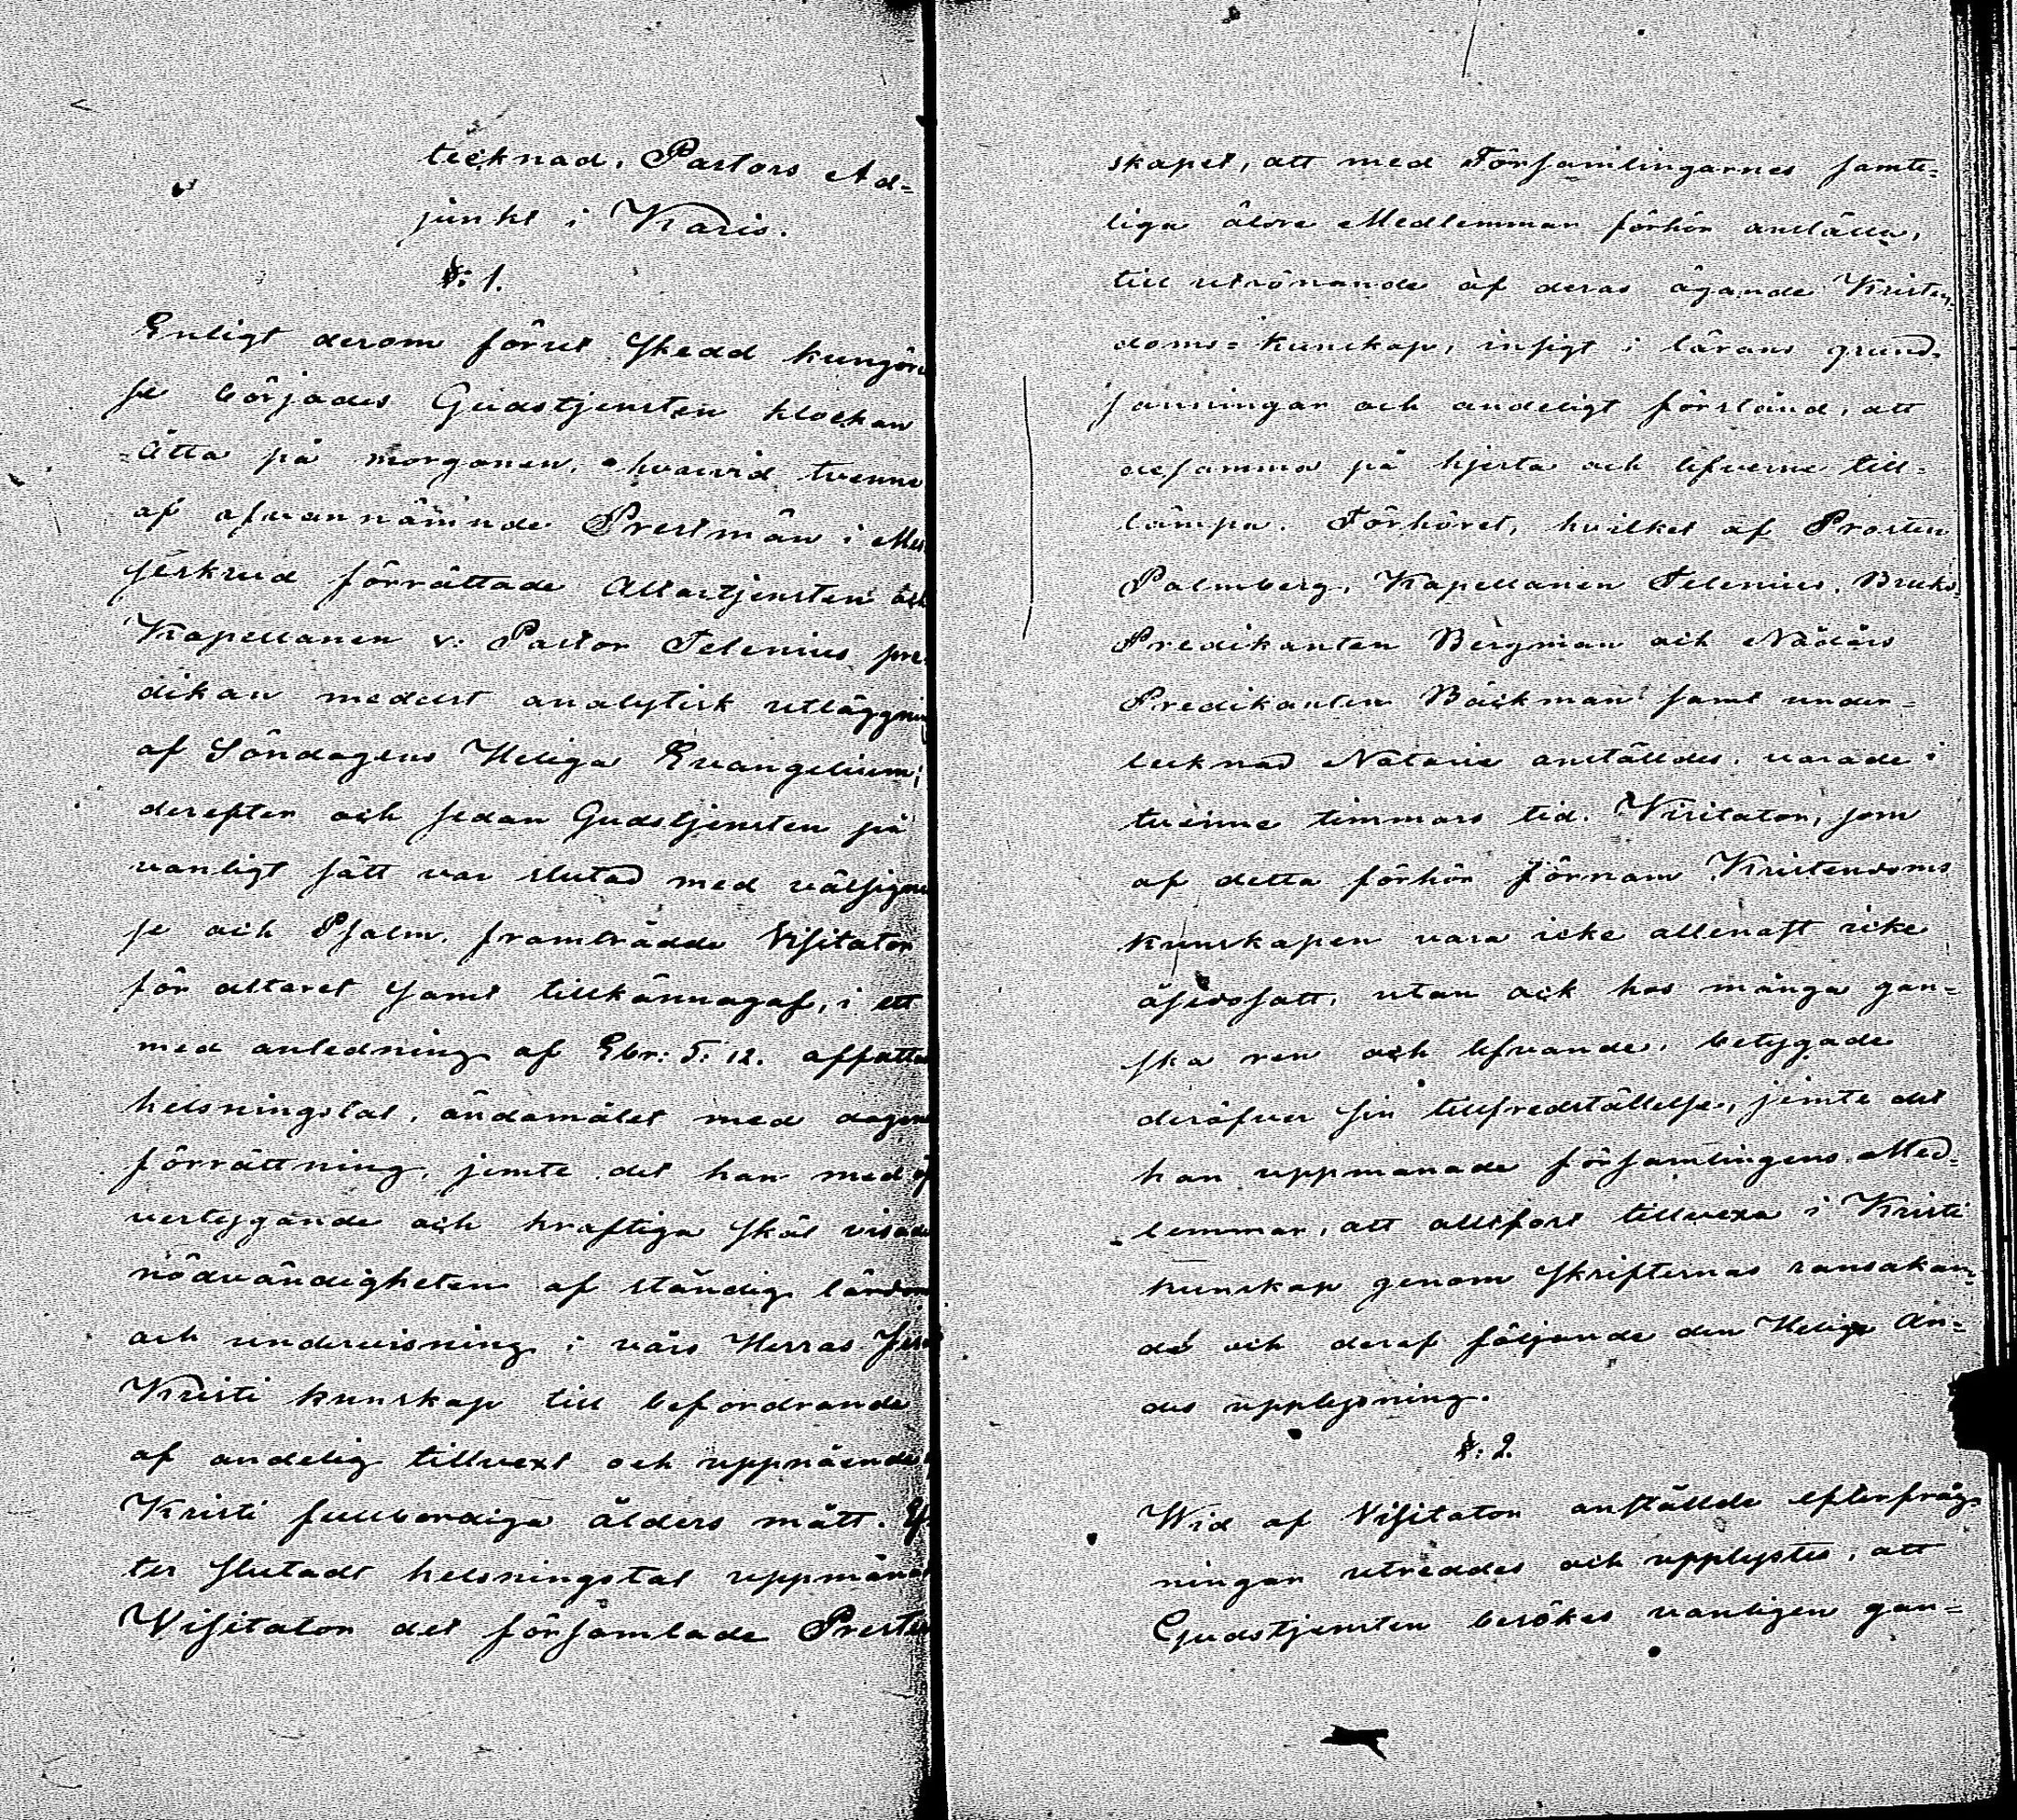 tecknad, Pastors Ad-
junkt i Karis.
§: 1.
Enligt derom förut skedd kungörel
se börjades Gudstjensten klockan
åtta på morgonen, hvarvid tvenne
af ofvannämnde Prestmän i Mes
seskrud förrättade Altartjensten och
Kapellanen v: Pastor Telenius pre-
dikan medelst analytisk utläggning
af Söndagens Heliga Evangelium;
derefter och sedan Gudstjensten på
vanligt sätt var slutad med välsignel
se och Psalm, framträdde Visitator
för altaret samt tillkännagaf, i ett
med anledning af Ebr: 5: 12. affattadt
helsningstal, ändamålet med dagens
förrättning, jemte det han med öf
vertygande och kraftiga skäl visade
nödvändigheten af ständig lärdom
och undervisning i vårs Herras Jesu
Kristi kunskap till befordrande
af andelig tillvext och uppnående af
Kristi fullbordiga ålders mått. Ef
ter slutadt helsningstal uppmanade
Visitator det församlade Prester
skapet, att med Församlingarnes samte-
liga äldre Medlemmar förhör anställa,
till utrönande af deras ägande Kristen-
doms-kunskap, insigt i lärans grund-
sanningar och andeligt förstånd, att
desamma på hjerta och lefverne till-
lämpa. Förhöret, hvilket af Prosten
Palmberg, Kapellanen Telenius, Bruks-
Predikanten Bergman och Nådårs
Predikanten Bäckman samt under-
tecknad Notarie anställdes, varade i
tvenne timmars tid. Visitator, som
af detta förhör förnam Kristendoms
kunskapen vara icke allenast icke
åsidosatt, utan ock hos många gan-
ska ren och lefvande, betygade
deröfver sin tillfredställelse, jemte det
han uppmanade församlingens Med-
lemmar, att alltfort tillvexa i Kristi
kunskap genom Skrifternas ransakan-
de och deraf följande den Helige An-
des upplysning.
§: 2.
Wid af Visitator anställde efterfråg-
ningar utreddes och upplystes, att
Gudstjensten besökes vanligen gan-